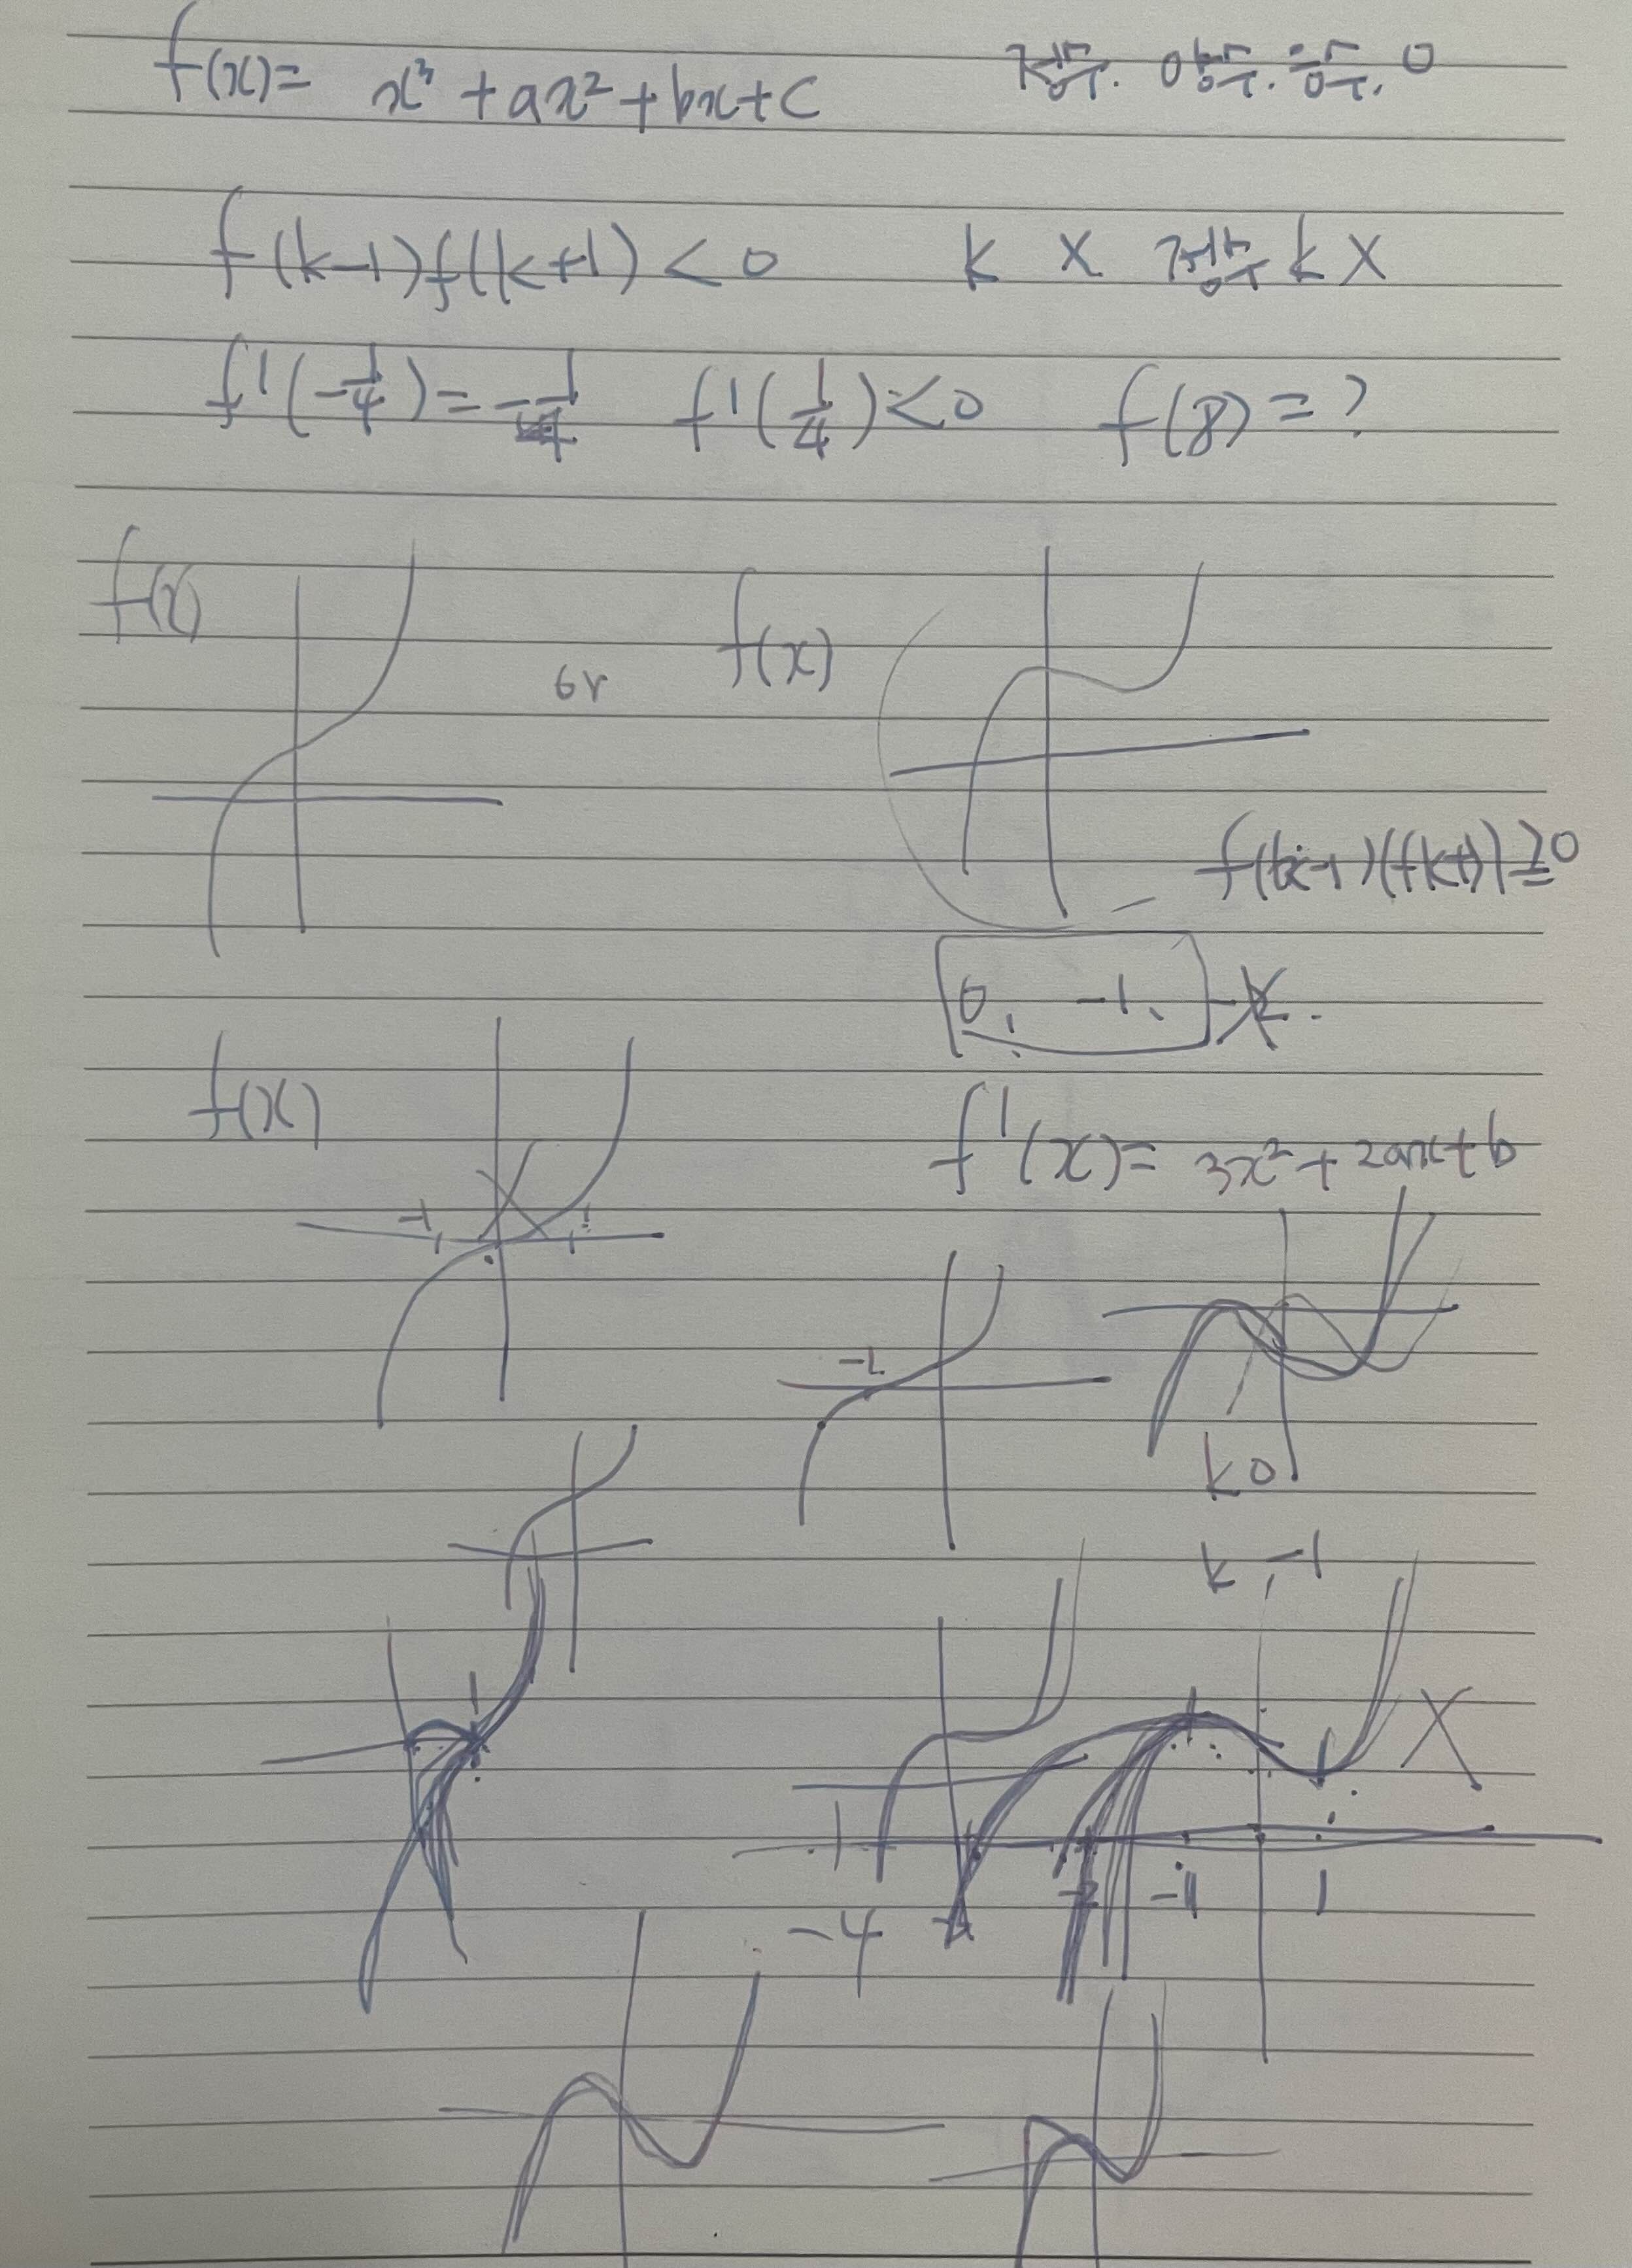 f(x)= x³+ax²+bx+c 정수. 양정수. 음정수. 0
f(k-1)f(k+1)<0 k X 정수 k X
f'(-1/4)=-1/4 f'(1/4)<0 f(8)=?
f(x) or f(x)
f(k-1)(f(k+1)≥0
0, -1,
f(x) f'(x)= 3x²+2ax+b
-1 1
k 0
k -1
1
-4 -2 -1 1